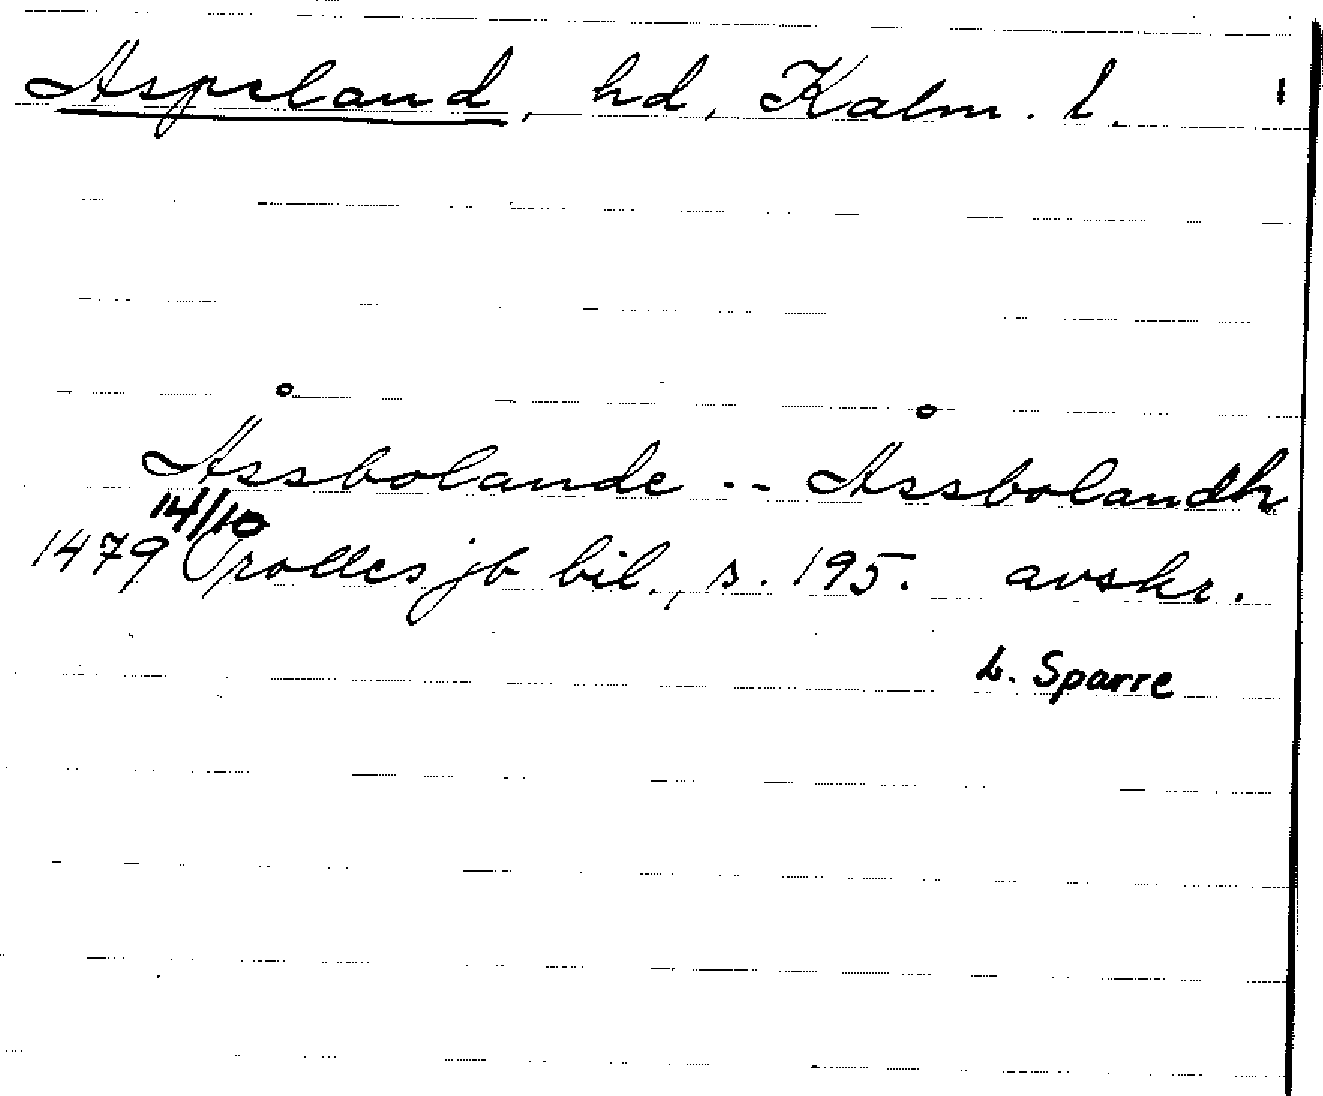 Aspeland, hd, Kalm. l.
Åssbolande -- Åssbolandh
1479 14/10 Trolles jb bil., s. 195. avskr.
L. Sparre